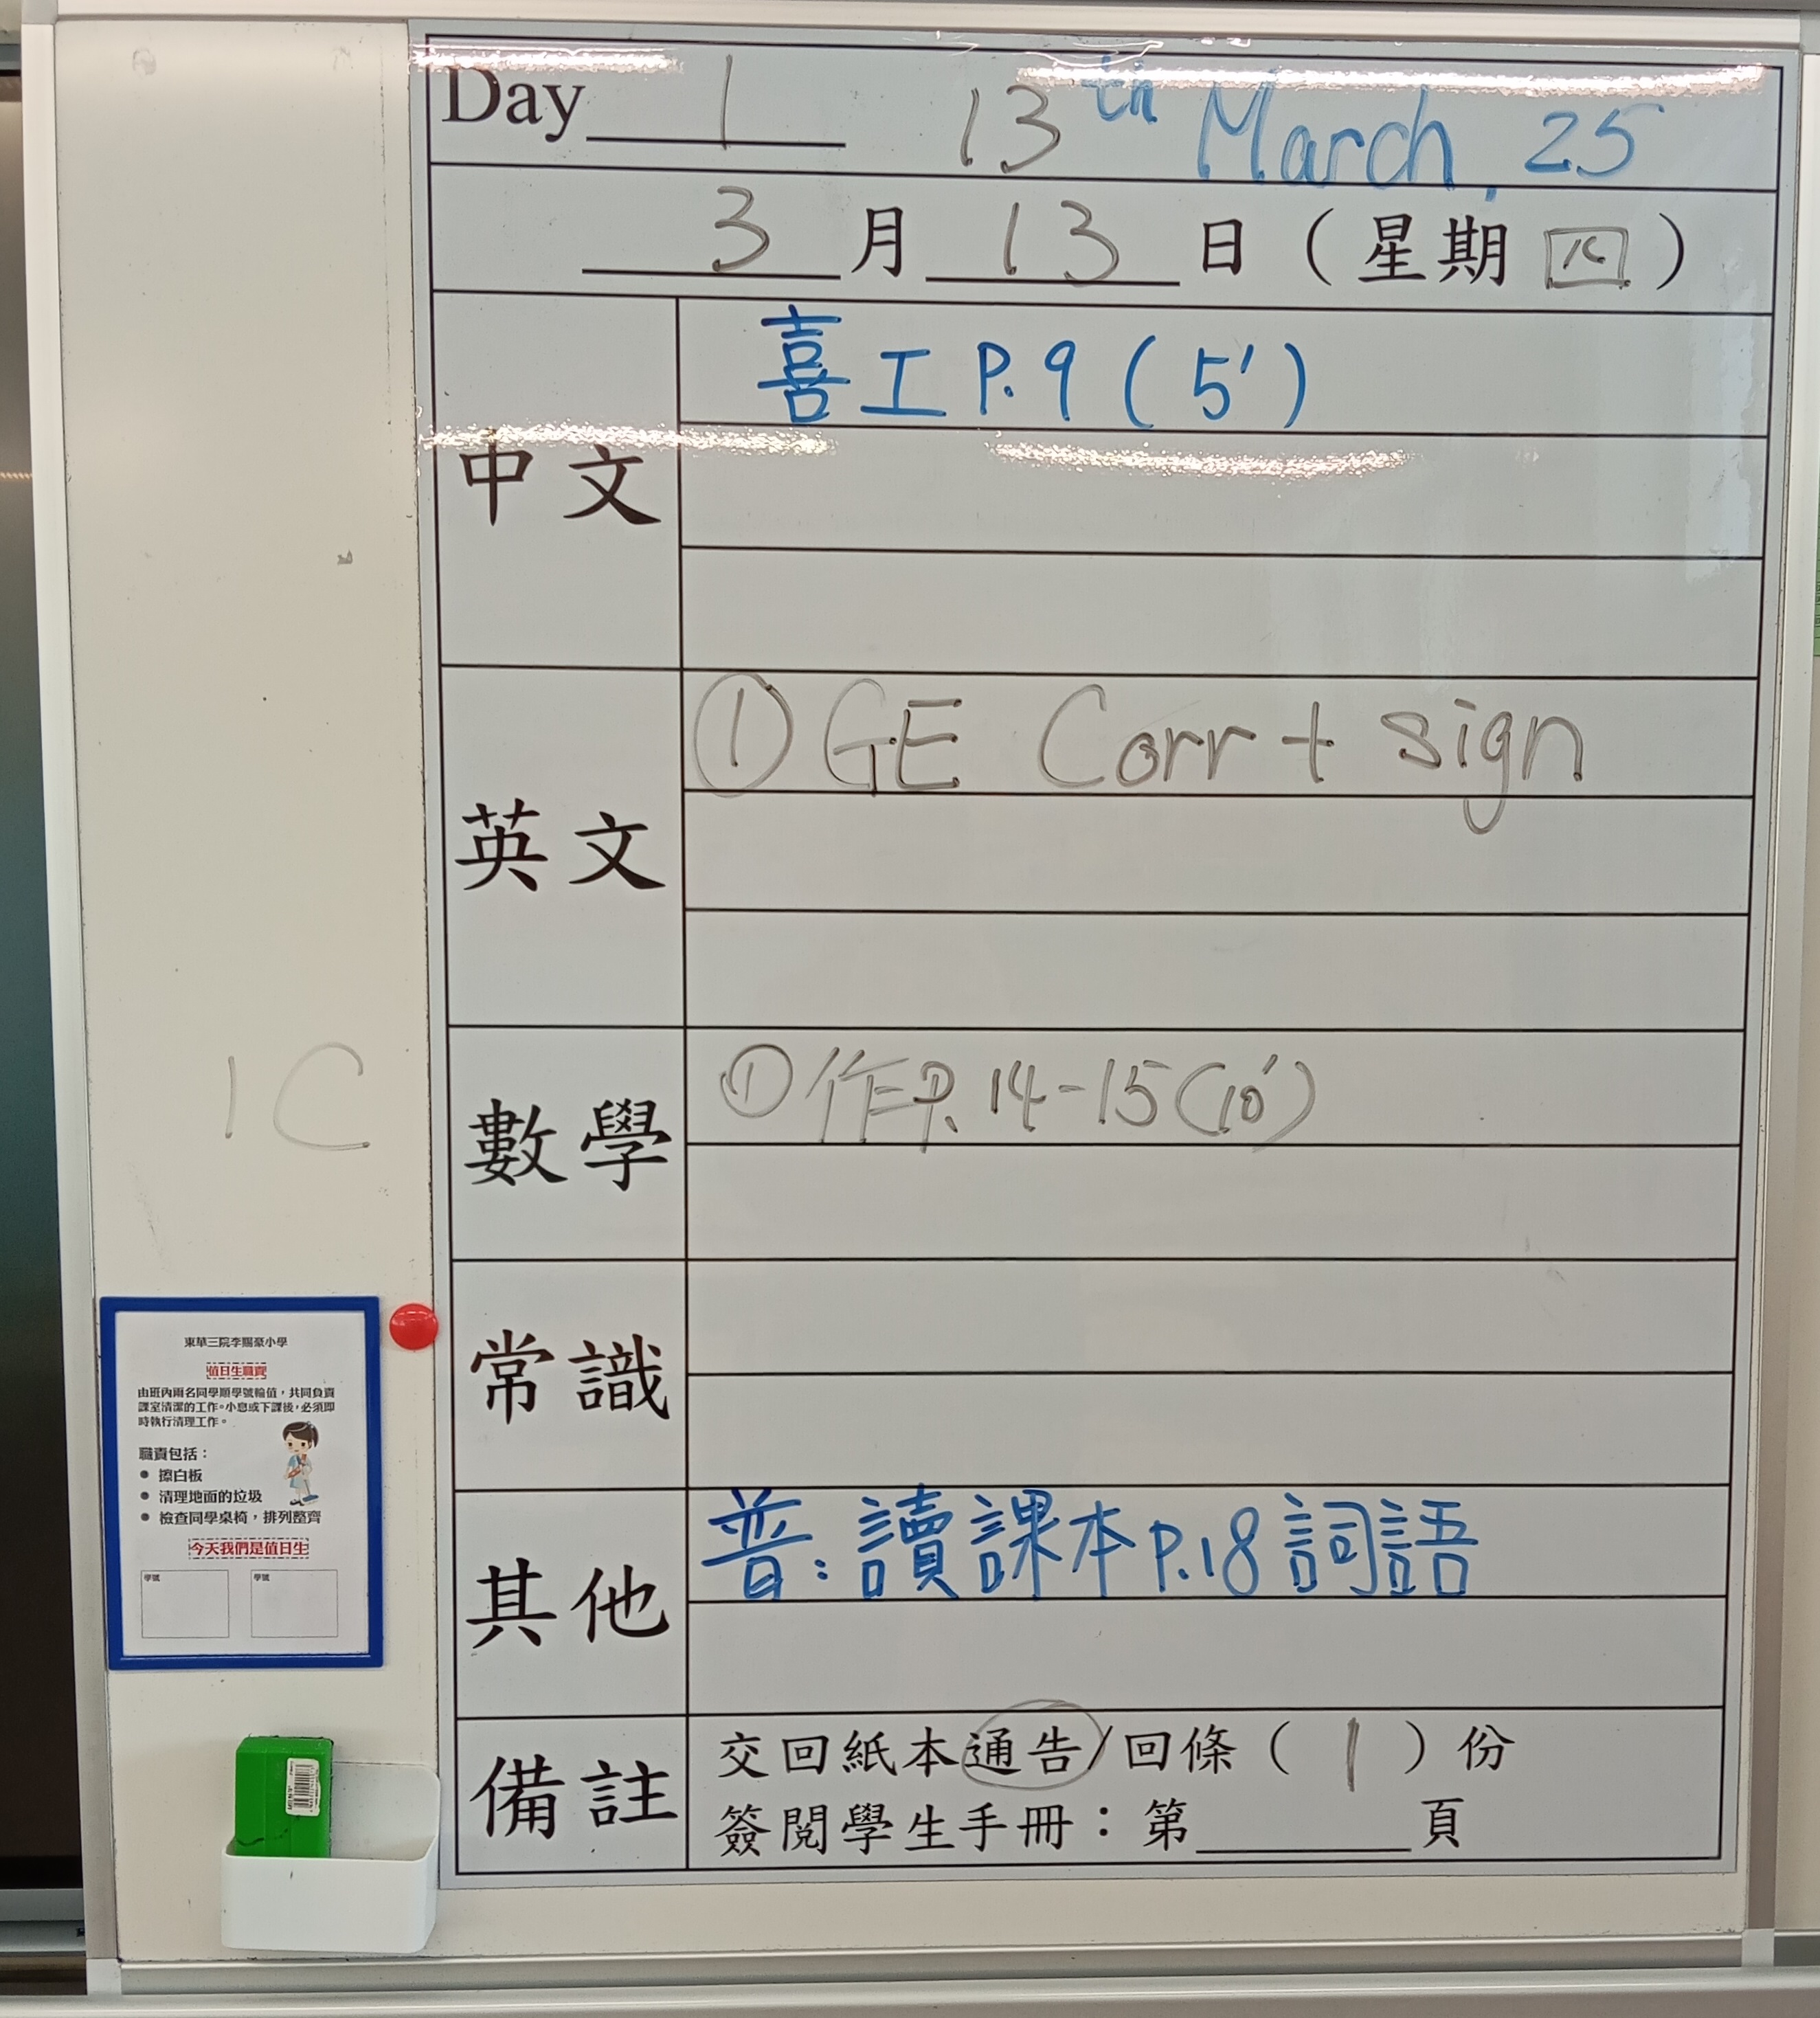 Day 1 13th March, 25
3 月 13 日 ( 星期 四 )
中文
喜工 P.9 ( 5' )
英文
① GE Corr + sign
數學
① 作 P. 14-15 (10')
1C
常識
其他
普: 讀課本 P.18 詞語
備註
交回紙本通告/回條 ( 1 ) 份
簽閱學生手冊：第 頁
東華三院李賜豪小學
值日生職責
由班內兩名同學順學號輪值，共同負責
課室清潔的工作。小息或下課後，必須即
時執行清理工作。
職責包括：
● 擦白板
● 清理地面的垃圾
● 檢查同學桌椅，排列整齊
今天我們是值日生
學號 學號